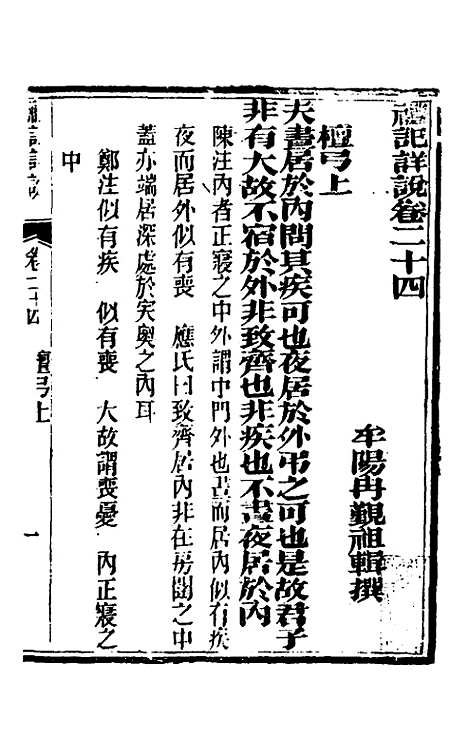 禮記詳說卷二十四
牟陽冉覲祖輯撰
檀弓上
夫晝居於內問其疾可也夜居於外弔之可也是故君子
非有大故不宿於外非致齊也非疾也不晝夜居於內
陳注內者正寢之中外謂中門外也晝而居內似有疾
夜而居外似有喪　應氏曰致齊居內非在房闥之中
蓋亦端居深處於突奧之內耳
鄭注似有疾　似有喪　大故謂喪憂　內正寢之
中
禮記詳說
卷二十四
檀弓上
一